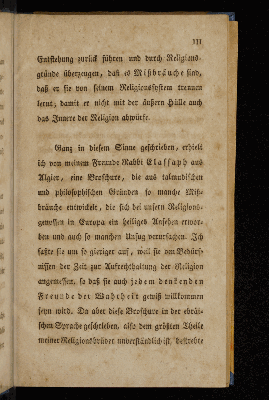 III
Entstehung zurück führen und durch Religions-
gründe überzeugen, daß es Mißbräuche sind,
daß er sie von seinem Religionssystem trennen
lernt, damit er nicht mit der äußern Hülle auch
das Innere der Religion abwürfe.
Ganz in diesem Sinne geschrieben, erhielt
ich von meinem Freunde Rabbi Elassaph aus
Algier, eine Broschure, die aus talmudischen
und philosophischen Gründen so manche Miß-
bräuche entwickelt, die sich bei unsern Religions-
genossen in Europa ein heiliges Ansehen erwor-
ben und auch so manchen Unfug verursachen. Ich
faßte sie um so gieriger auf, weil sie den Bedürf-
nissen der Zeit zur Aufrechthaltung der Religion
angemessen, so daß sie auch jedem denkenden
Freunde der Wahrheit gewiß willkommen
seyn wird. Da aber diese Broschure in der ebräi-
schen Sprache geschrieben, also dem größten Theile
meiner Religionsbrüder unverständlich ist, strebte